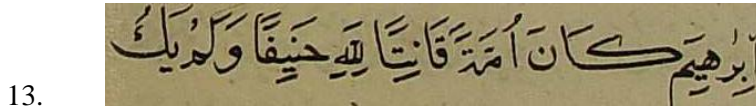 13.
اِبْرٰهِيمَ كَانَ اُمَّةً قَانِتًا لِلّٰهِ حَنِيفًا وَلَمْ يَكُ